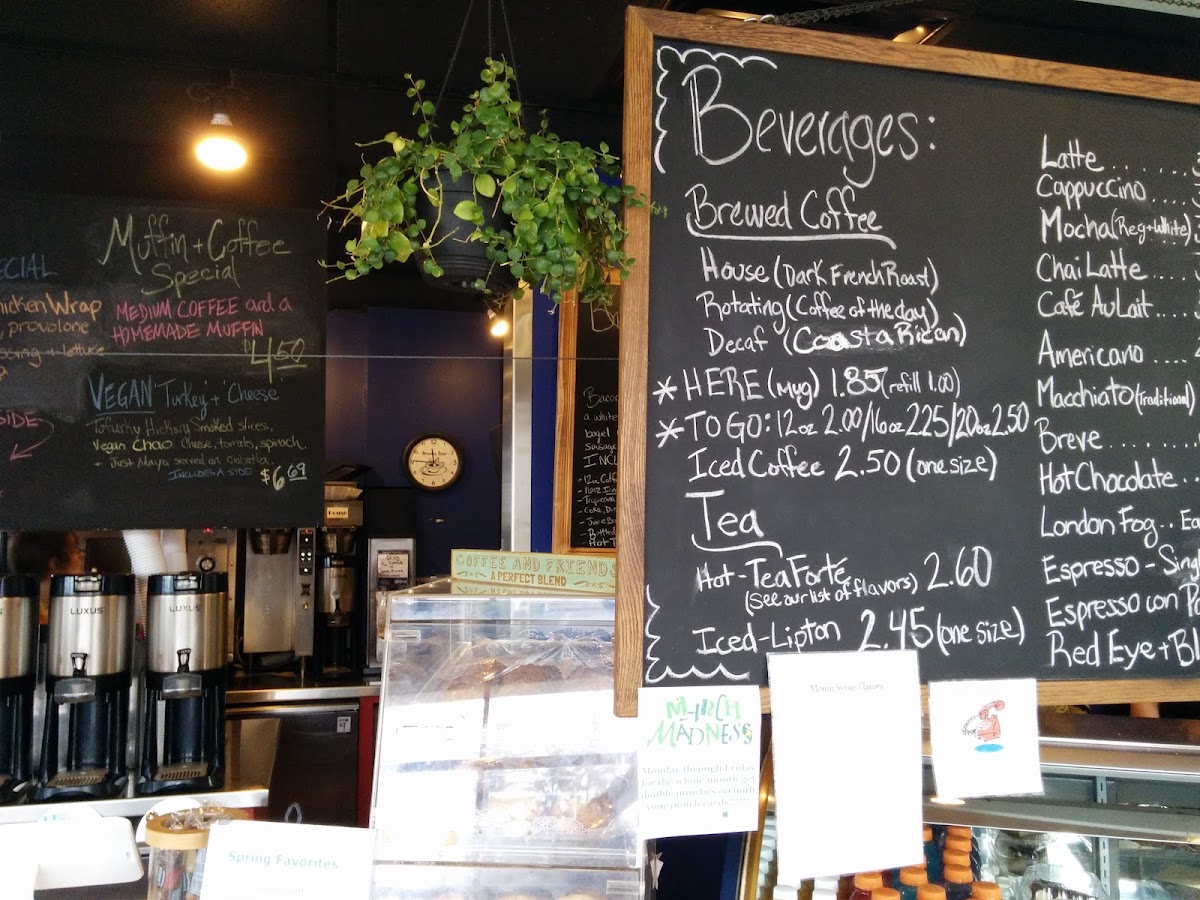 Muffin + Coffee
Special
MEDIUM COFFEE and a
HOMEMADE MUFFIN
$4.50
Wrap
, provolone
+ lettuce
SIDE
VEGAN 'Turkey' + 'Cheese'
Tofurky Hickory Smoked slices,
Vegan Chao Cheese, tomato, spinach
+ Just Mayo served on ciabatta
INCLUDES A SIDE $6.69
LUXUS
LUXUS
House
Bacon
a white
bagel
Sausage
COFFEE AND FRIENDS
A PERFECT BLEND
Beverages:
Brewed Coffee
House (Dark French Roast)
Rotating (Coffee of the day)
Decaf (Costa Rican)
* HERE (mug) 1.85 (refill 1.00)
* TO GO: 12oz 2.00/16oz 2.25/20oz 2.50
Iced Coffee 2.50 (one size)
Tea
Hot - Tea Forte 2.60
(See our list of flavors)
Iced - Lipton 2.45 (one size)
Latte........
Cappuccino.....
Mocha (Reg + White)
Chai Latte....
Café Au Lait....
Americano....
Macchiato (Traditional)
Breve........
Hot Chocolate..
London Fog..
Espresso -
Espresso con
Red Eye +
MARCH
MADNESS
Monday through Friday
for the whole month get
double punches on both
your punch cards!!!!!
Monin Syrup Flavors
Spring Favorites